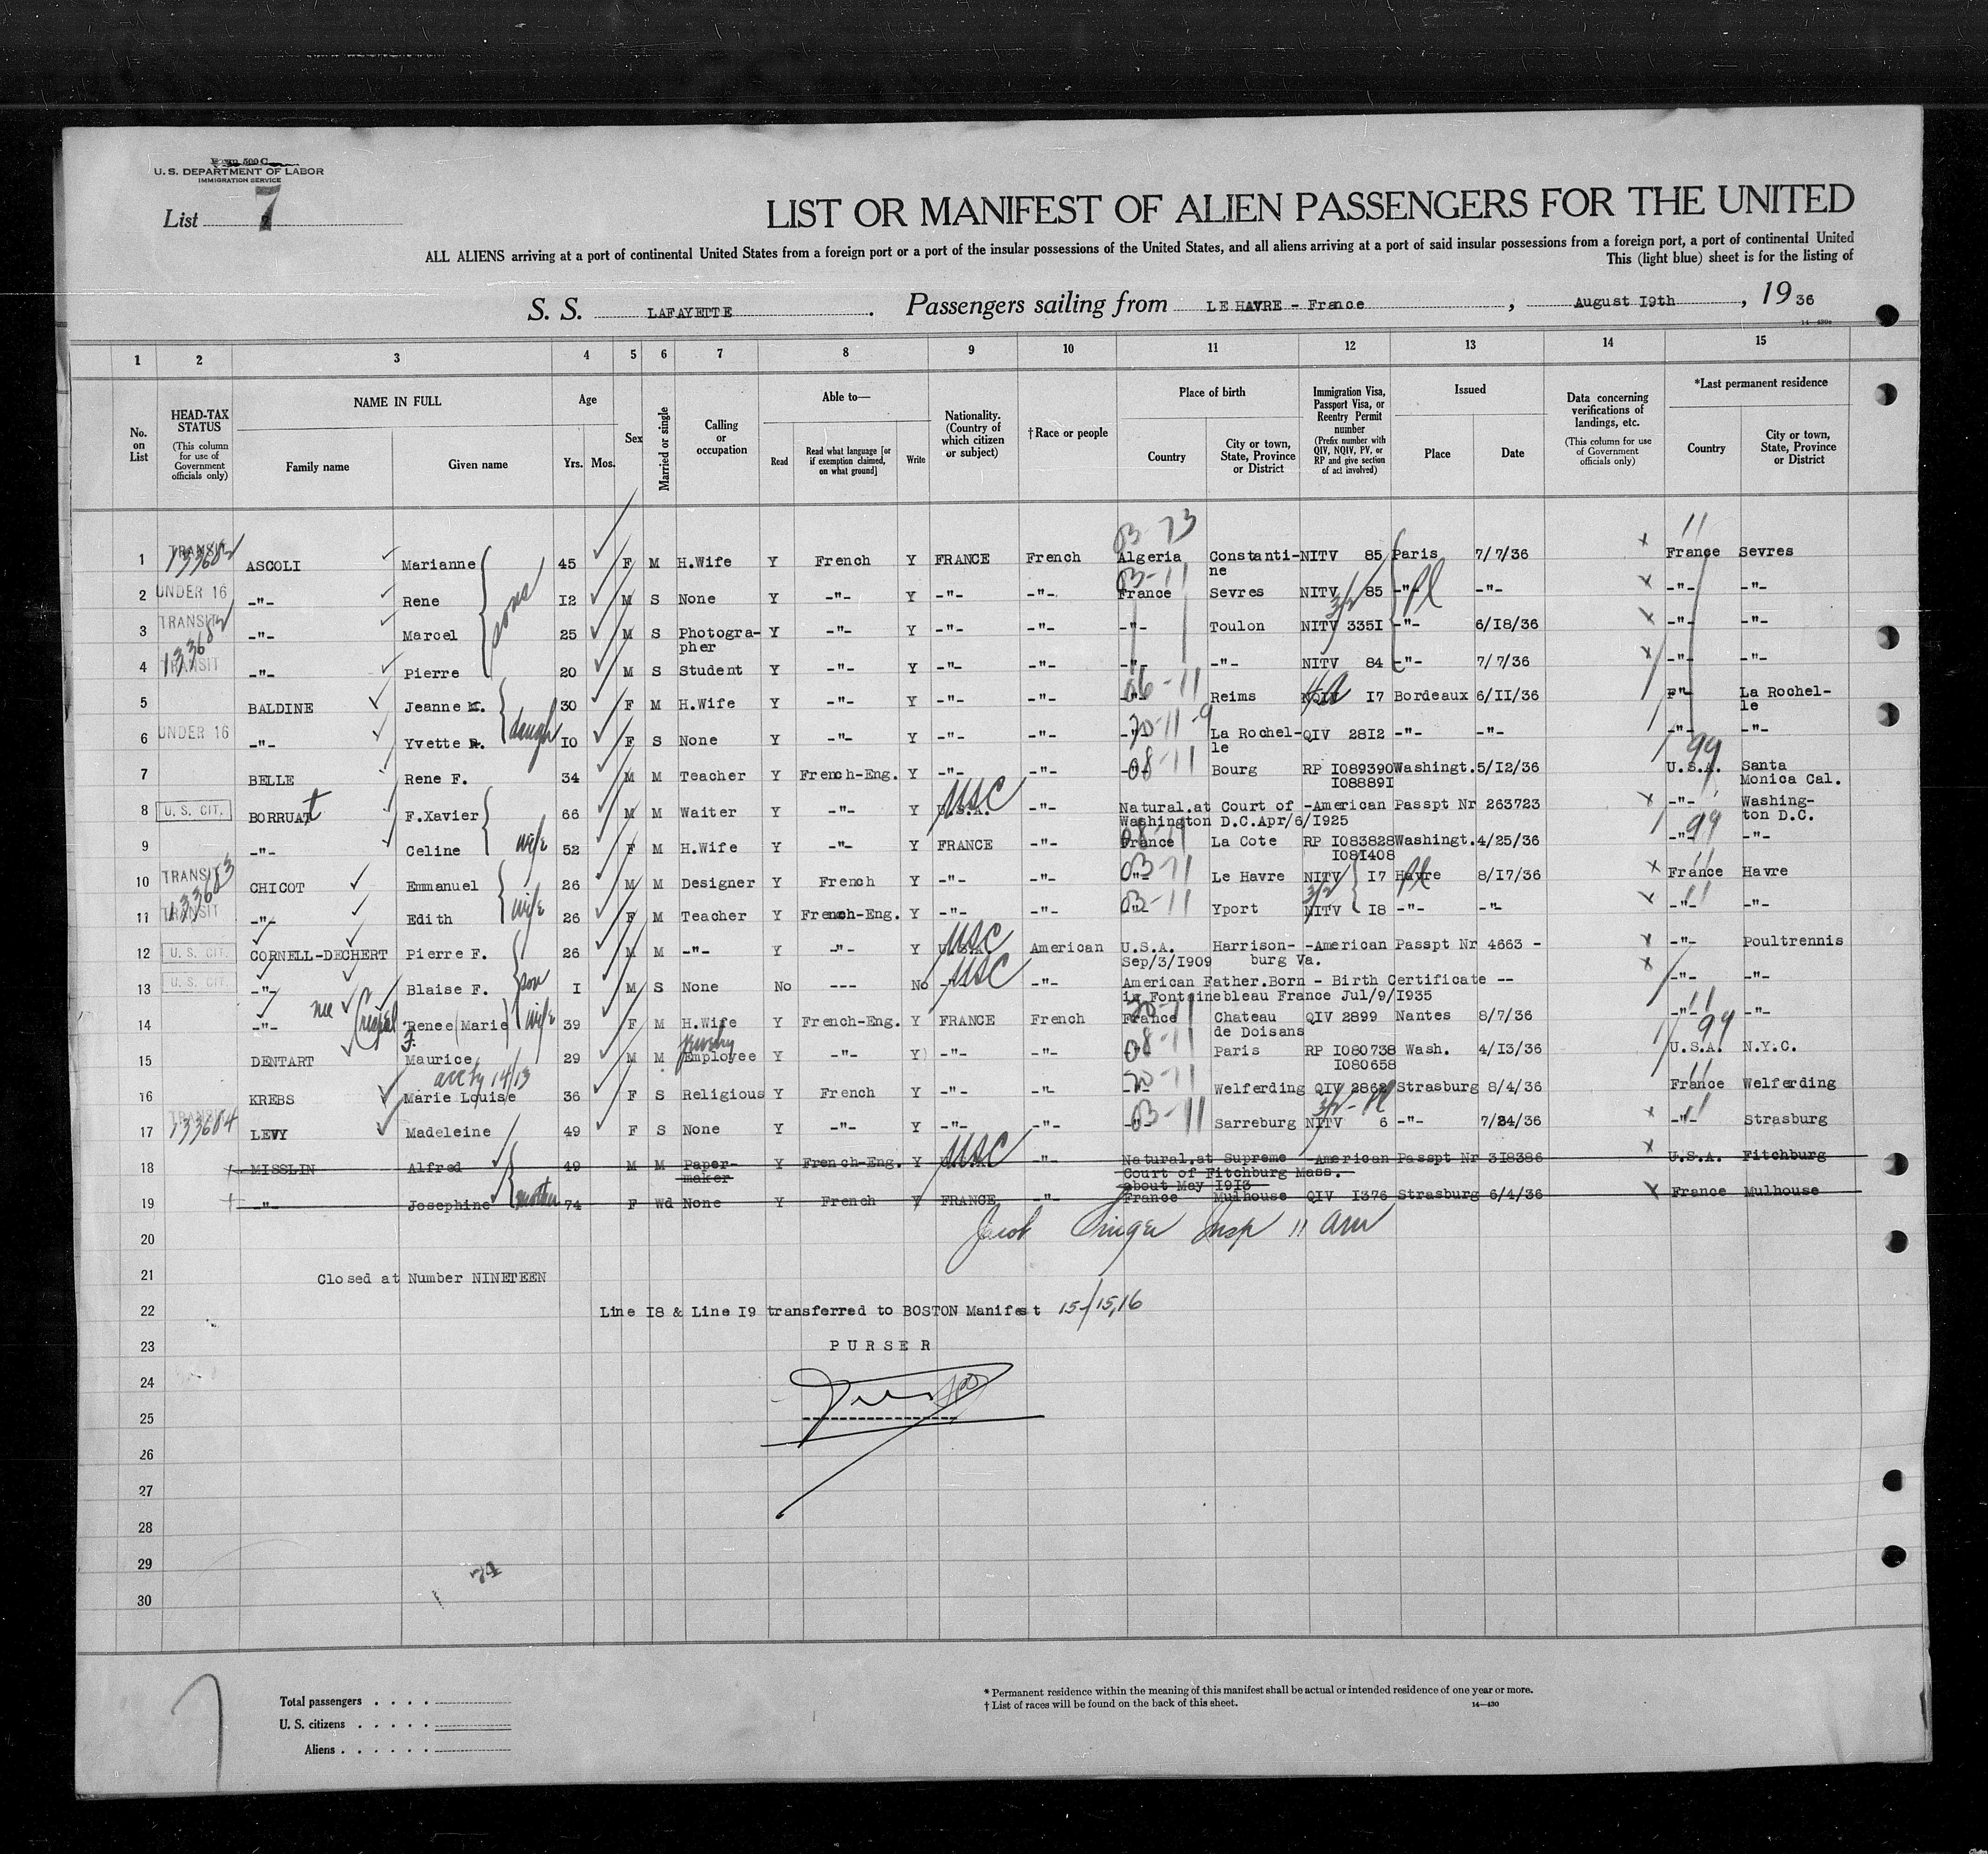 Form 500 C
U. S. DEPARTMENT OF LABOR
IMMIGRATION SERVICE
List 7
LIST OR MANIFEST OF ALIEN PASSENGERS FOR THE UNITED
ALL ALIENS arriving at a port of continental United States from a foreign port or a port of the insular possessions of the United States, and all aliens arriving at a port of said insular possessions from a foreign port, a port of continental United
This (light blue) sheet is for the listing of
S. S. LAFAYETTE. Passengers sailing from LE HAVRE - France, August I9th, 19 36
1 2 3 4 5 6 7 8 9 10 11 12 13 14 15
No. on List
HEAD-TAX STATUS (This column for use of Government officials only)
NAME IN FULL Family name Given name
Age Yrs. Mos.
Sex
Married or single
Calling or occupation
Able to— Read Read what language [or if exemption claimed, on what ground] Write
Nationality. (Country of which citizen or subject)
†Race or people
Place of birth Country City or town, State, Province or District
Immigration Visa, Passport Visa, or Reentry Permit number (Prefix number with QIV, NQIV, PV, or RP and give section of act involved)
Issued Place Date
Data concerning verifications of landings, etc. (This column for use of Government officials only)
*Last permanent residence Country City or town, State, Province or District
03-73 11
1 TRANSIT 133682 ASCOLI Marianne 45 F M H.Wife Y French Y FRANCE French Algeria Constanti-ne NITV 85 Paris 7/7/36 x France Sevres
2 UNDER 16 -"- Rene sons I2 M S None Y -"- Y -"- -"- 03-11 France Sevres NITV 85 -"- -"- x -"- -"-
3 TRANSIT -"- Marcel 25 M S Photogra-pher Y -"- Y -"- -"- -"- Toulon NITV 335I -"- 6/I8/36 x -"- -"-
4 TRANSIT 133682 -"- Pierre 20 M S Student Y -"- Y -"- -"- -"- -"- NITV 84 -"- 7/7/36 x -"- -"-
5 BALDINE Jeanne M. 30 F M H.Wife Y -"- Y -"- -"- 06-11 Reims NQIV I7 Bordeaux 6/II/36 F"- La Rochel-le
6 UNDER 16 -"- Yvette R. daugh I0 F S None Y -"- Y -"- -"- 20-11-9 La Rochel-le QIV 28I2 -"- -"- -"- -"-
7 BELLE Rene F. 34 M M Teacher Y French-Eng. Y -"- -"- 08-11 Bourg RP I089390 I08889I Washingt. 5/I2/36 99 U.S.A. Santa Monica Cal.
8 U. S. CIT. BORRUAT t F.Xavier 66 M M Waiter Y -"- Y U.S.A. USC -"- Natural.at Court of -American Passpt Nr 263723 x -"- Washing-ton D.C.
Washington D.C.Apr/6/I925
9 -"- Celine wife 52 F M H.Wife Y -"- Y FRANCE -"- 08-11 France La Cote RP I083828 I08I408 Washingt. 4/25/36 99 -"- -"-
10 TRANSIT 133683 CHICOT Emmanuel 26 M M Designer Y French Y -"- -"- 03-11 Le Havre NITV I7 Havre 8/I7/36 x France Havre
11 TRANSIT -"- Edith wife 26 F M Teacher Y French-Eng. Y -"- -"- 03-11 Yport NITV I8 -"- -"- x -"- -"-
12 U. S. CIT. CORNELL-DECHERT Pierre F. 26 M M -"- Y -"- Y U.S.A. USC American U.S.A. Harrison- -American Passpt Nr 4663 - x -"- Poultrennis
Sep/3/I909 burg Va.
13 U. S. CIT. -"- Blaise F. son I M S None No --- No -"- USC -"- American Father.Born - Birth Certificate -- x -"- -"-
in Fontainebleau France Jul/9/I935
14 -"- nee Crespel Renee (Marie) wife 39 F M H.Wife Y French-Eng. Y FRANCE French 20-11 France Chateau de Doisans QIV 2899 Nantes 8/7/36 -"- -"-
15 DENTART F. Maurice 29 M M Jewelry Employee Y -"- Y -"- -"- 08-11 Paris RP I080738 I080658 Wash. 4/I3/36 99 U.S.A. N.Y.C.
accby 14/13
16 KREBS Marie Louise 36 F S Religious Y French Y -"- -"- 20-11 Welferding QIV 2862 Strasburg 8/4/36 France Welferding
17 TRANSIT 133684 LEVY Madeleine 49 F S None Y -"- Y -"- -"- 03-11 Sarreburg NITV 6 -"- 7/24/36 x -"- Strasburg
18 MISSLIN Alfred 49 M M Paper-maker Y French-Eng. Y USC -"- Natural.at Supreme -American Passpt Nr 3I8386 x U.S.A. Fitchburg
Court of Fitchburg Mass.
about May I9I3
19 -"- Josephine mother 74 F Wd None Y French Y FRANCE -"- France Mulhouse QIV I376 Strasburg 6/4/36 x France Mulhouse
20 Jacob Singer Insp 11 am
21 Closed at Number NINETEEN
22 Line I8 & Line I9 transferred to BOSTON Manifest 15-/15,16
23 PURSER
24
25
26
27
28
29
30
7
Total passengers . . . .
U. S. citizens . . . . .
Aliens . . . . . .
* Permanent residence within the meaning of this manifest shall be actual or intended residence of one year or more.
† List of races will be found on the back of this sheet. 14—430